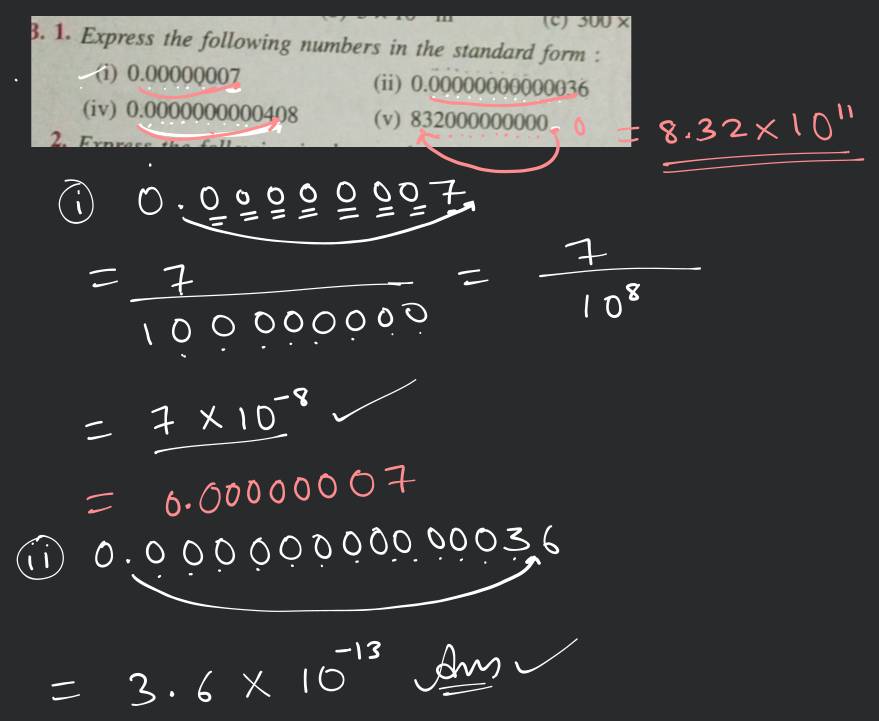 (c) 300 ×
3. 1. Express the following numbers in the standard form :
(i) 0.00000007 (ii) 0.00000000000036
(iv) 0.0000000000408 (v) 832000000000. 0 = 8.32 × 10¹¹
2. Express the
(i) 0.00000007
= 7/100000000 = 7/10⁸
= 7 × 10⁻⁸ ✓
= 0.00000007
(ii) 0.00000000000036
= 3.6 × 10⁻¹³ Ans ✓